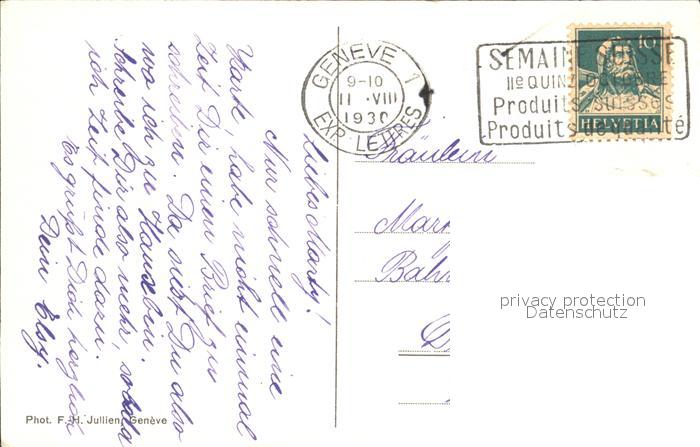 Liebes Marty!
Nur schnell eine
Karte, habe nicht einmal
Zeit Dir einen Brief zu
schreiben. Da siehst Du also
wo ich zu Hause bin.
Schreibe Dir also mehr, sobald
ich Zeit finde dazu.
Es grüsst Dich herzlich
Dein Elsy.
Phot. F. H. Jullien, Genève
GENEVE 1
9-10
11. VIII
1930
EXP. LETTRES
SEMAINE SUISSE
IIe QUINZ. OCTOBRE
Produits suisses
Produits de qualité
10
HELVETIA
Fräulein
privacy protection
Datenschutz